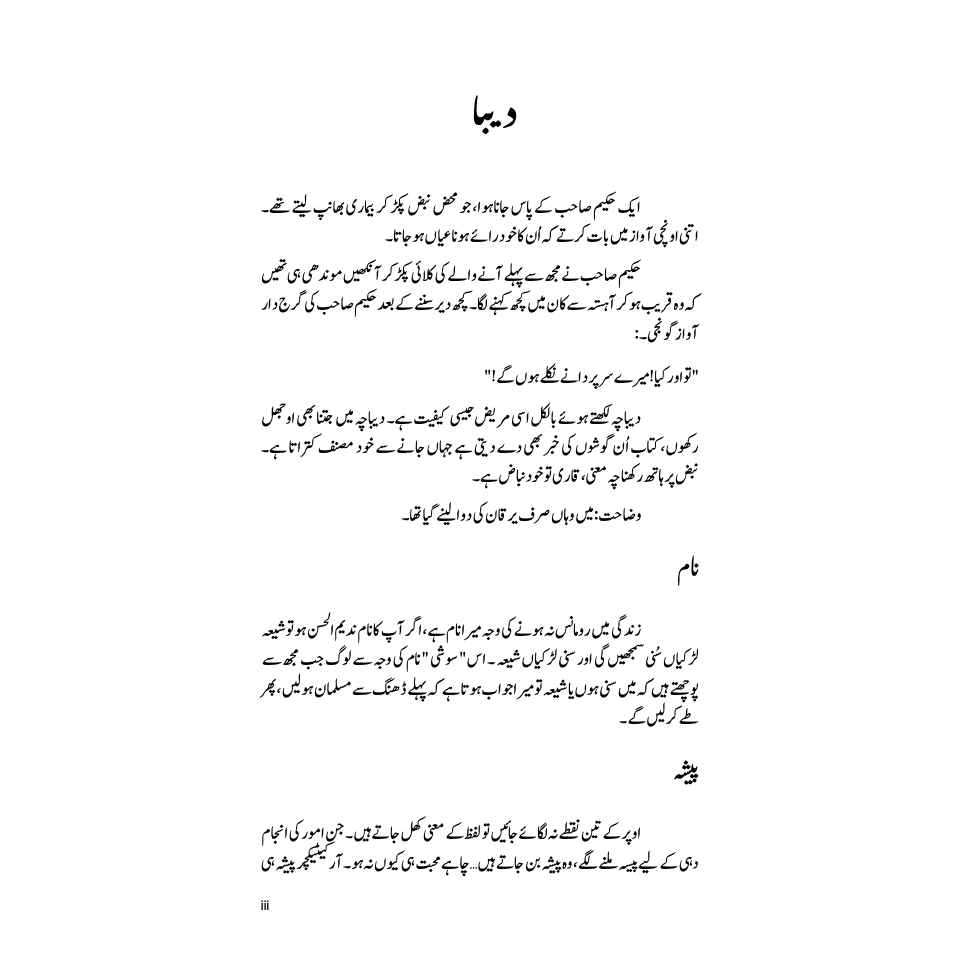 دیبا
ایک حکیم صاحب کے پاس جانا ہوا، جو محض نبض پکڑ کر بیماری بھانپ لیتے تھے۔
اتنی اونچی آواز میں بات کرتے کہ اُن کا خود رائے ہونا عیاں ہو جاتا۔
حکیم صاحب نے مجھ سے پہلے آنے والے کی کلائی پکڑ کر آنکھیں موندھی ہی تھیں
کہ وہ قریب ہو کر آہستہ سے کان میں کچھ کہنے لگا۔ کچھ دیر سننے کے بعد حکیم صاحب کی گرج دار
آواز گونجی۔:
"تو اور کیا! میرے سر پر دانے نکلے ہوں گے!"
دیباچہ لکھتے ہوئے بالکل اسی مریض جیسی کیفیت ہے۔ دیباچہ میں جتنا بھی اوجھل
رکھوں، کتاب اُن گوشوں کی خبر بھی دے دیتی ہے جہاں جانے سے خود مصنف کتراتا ہے۔
نبض پر ہاتھ رکھنا چہ معنی، قاری تو خود نباض ہے۔
وضاحت: میں وہاں صرف یرقان کی دوا لینے گیا تھا۔
نام
زندگی میں رومانس نہ ہونے کی وجہ میرا نام ہے، اگر آپ کا نام ندیم الحسن ہو تو شیعہ
لڑکیاں سُنی سمجھیں گی اور سنی لڑکیاں شیعہ۔ اس "سوشی" نام کی وجہ سے لوگ جب مجھ سے
پوچھتے ہیں کہ میں سنی ہوں یا شیعہ تو میرا جواب ہوتا ہے کہ پہلے ڈھنگ سے مسلمان ہو لیں، پھر
طے کر لیں گے۔
پیشہ
اوپر کے تین نقطے نہ لگائے جائیں تو لفظ کے معنی کھل جاتے ہیں۔ جن امور کی انجام
دہی کے لیے پیسہ ملنے لگے، وہ پیشہ بن جاتے ہیں… چاہے محبت ہی کیوں نہ ہو۔ آرکیٹیکچر پیشہ ہی
iii